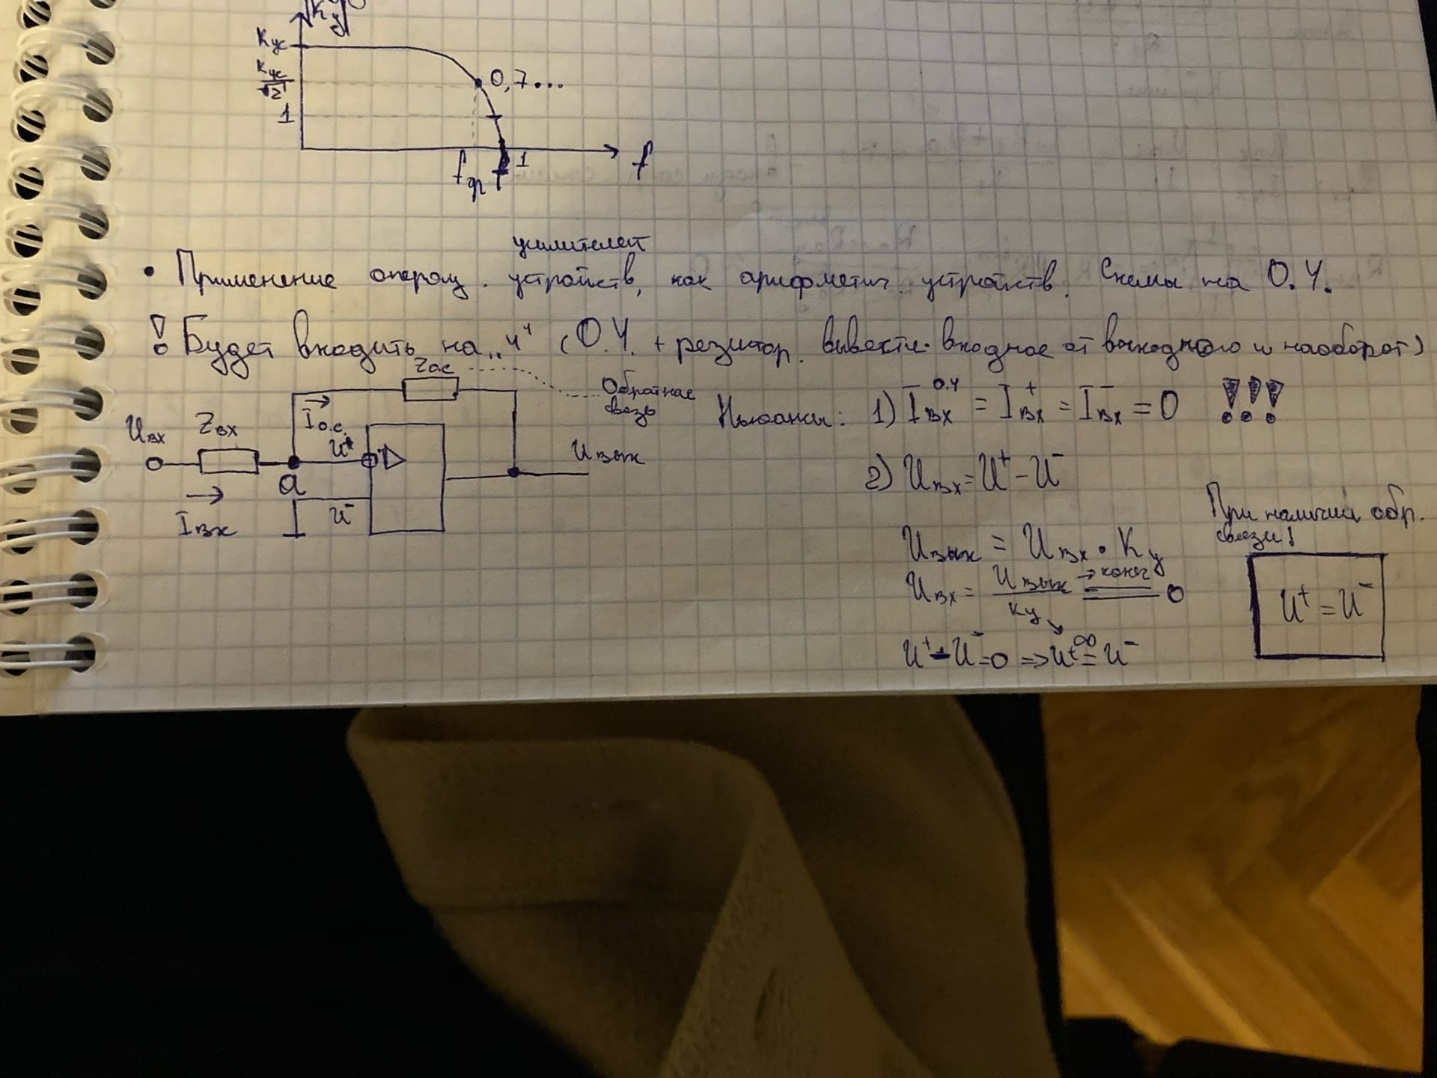 Kус
Kус/√2
1
0,7...
fгр
1
f
усилителей
• Применение операц. устройств, как арифметич. устройств. Схемы на О.У.
! Будет входить на „4“ (О.У. + резистор. вывести входное от выходного и наоборот)
Zос
Обратная связь
Uвх
Zвх
Iо.с.
U⁺
Uвых
a
U⁻
Iвх
Нюансы: 1) Iвх^О.У = Iвх⁺ = Iвх⁻ = 0 !!!
2) Uвх = U⁺ - U⁻
Uвых = Uвх • Kу
Uвх = Uвых → конеч / Kу → ∞ = 0
U⁺ - U⁻ = 0 => U⁺ = U⁻
При наличии обр. связи!
U⁺ = U⁻